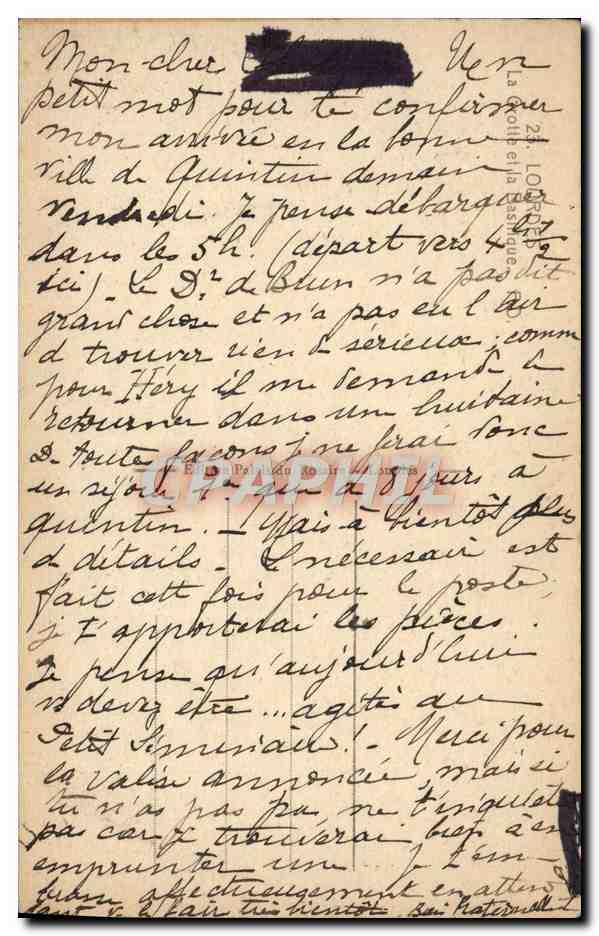 Mon cher Un
petit mot pour te confirmer
mon arrivée en la bonne
ville de Quintin demain
vendredi. Je pense débarquer
dans les 5h. (départ vers 4h 1/2
ici). Le Dr. de Brun n'a pas dit
grand chose et n'a pas eu l'air
d trouver rien d sérieux ; comm
pour Héry il me demande d
retourner dans une huitaine
De toute façons j ne ferai donc
un séjour que d 8 jours à
quintin. – Mais à bientôt plus
d détails. Le nécessair est
fait cett fois pour le poste,
je t'apporterai les pièces.
Je pense qu'aujourd'hui
vs devez être... agités au
Petit Séminaire! – Merci pour
la valise annoncée, mais si
tu n'as pas pas, ne t'inquiète
pas car j trouverai bien à en
emprunter une. Je t'em-
brasse affectueusement en atten
dant d le fair très bientôt. Bien fraternellement
23. LOURDES
La Grotte et la Basilique
Edition Palais du Rosaire - Lourdes
CPAPHIL